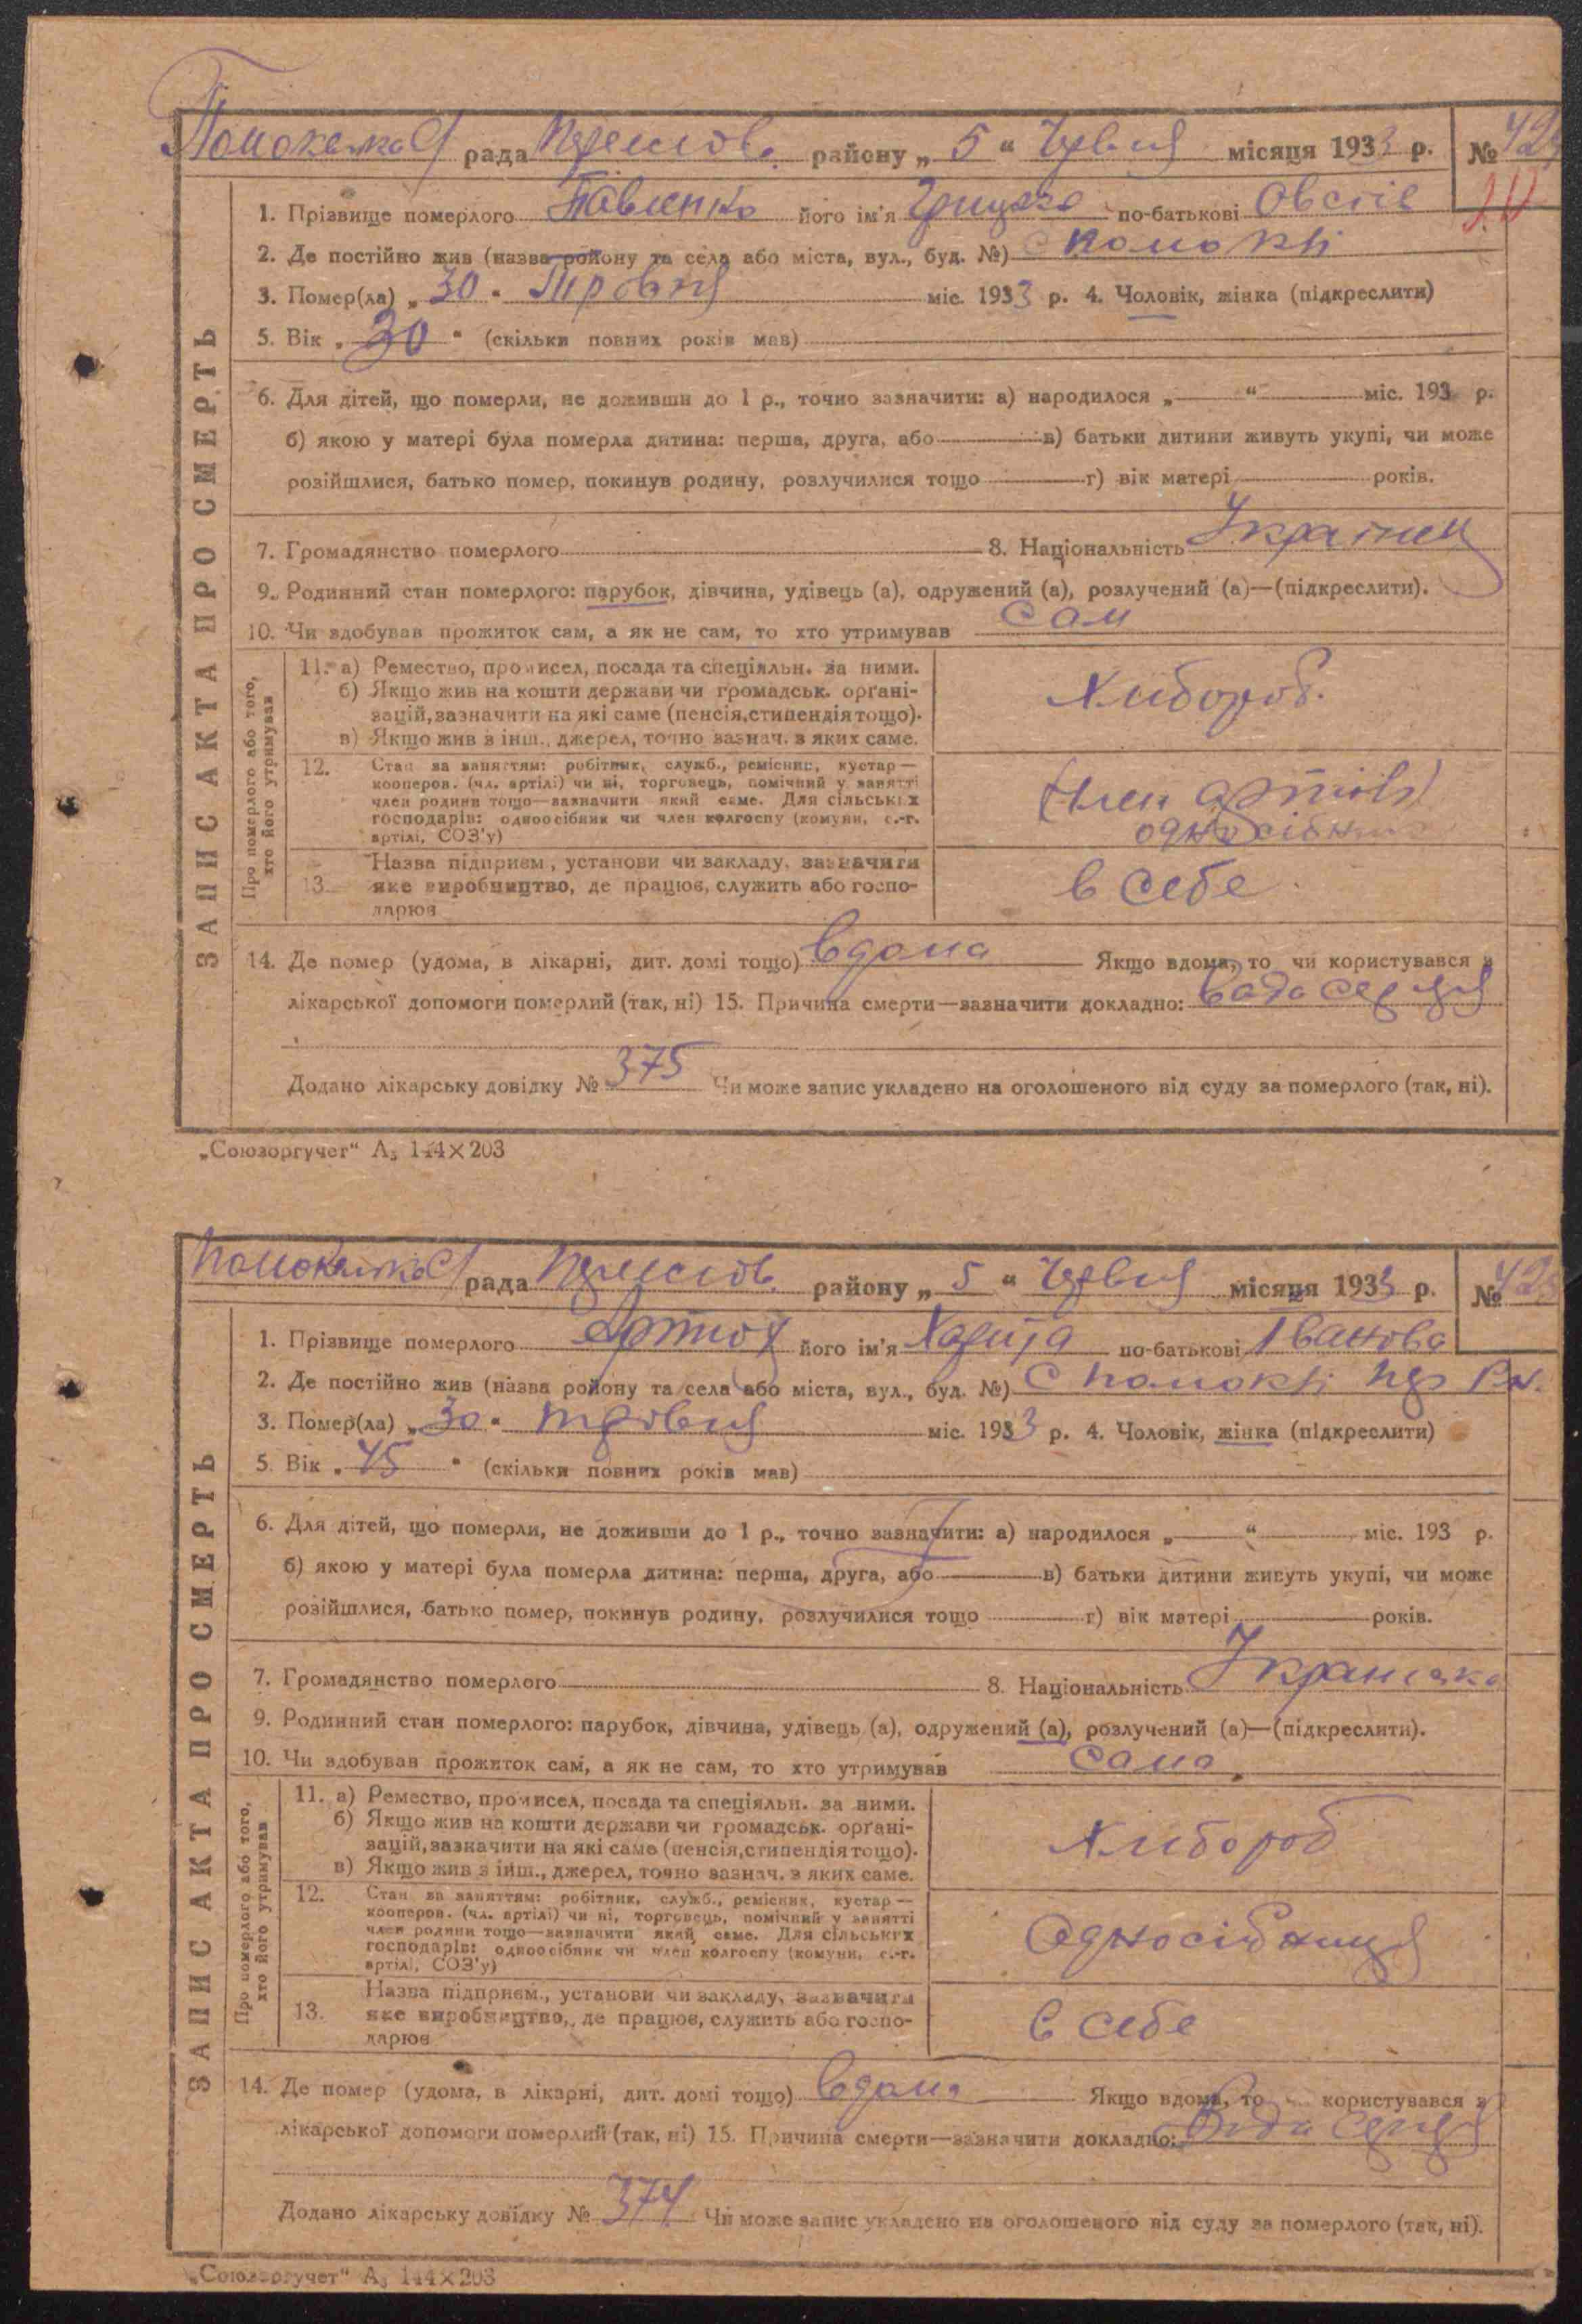 рада району „ 5 " Червня місяця 1933 р. №
1. Прізвище померлого Павленко його ім'я по-батькові Овсіїв
2. Де постійно жив (назва району та села або міста, вул., буд. №) с Помоклі
3. Помер(ла) „ 30 " Травня міс. 1933 р. 4. Чоловік, жінка (підкреслити)
5. Вік „ 30 " (скільки повних років мав)
6. Для дітей, що померли, не доживши до 1 р., точно зазначити: а) народилося „ " міс. 193 р.
б) якою у матері була померла дитина: перша, друга, або в) батьки дитини живуть укупі, чи може
розійшлися, батько помер, покинув родину, розлучилися тощо г) вік матері років.
7. Громадянство померлого 8. Національність Українец
9. Родинний стан померлого: парубок, дівчина, удівець (а), одружений (а), розлучений (а)—(підкреслити).
10. Чи здобував прожиток сам, а як не сам, то хто утримував Сам
ЗАПИС АКТА ПРО СМЕРТЬ
Про померлого або того,
хто його утримував
11. а) Ремество, промисел, посада та спеціяльн. за ними.
б) Якщо жив на кошти держави чи громадськ. орґані-
зацій, зазначити на які саме (пенсія, стипендія тощо).
в) Якщо жив з інш., джерел, точно зазнач. з яких саме.
Хлібороб.
12. Стан за заняттям: робітник, служб., ремісник, кустар—
кооперов. (чл. артілі) чи ні, торговець, помічний у занятті
член родини тощо—зазначити який саме. Для сільських
господарів: одноосібник чи член колгоспу (комуни, с.-г.
артілі, СОЗ'у)
(Член артілі)
одноосібник
13. Назва підприєм., установи чи закладу, зазначити
яке виробництво, де працює, служить або госпо-
дарює
в себе
14. Де помер (удома, в лікарні, дит. домі тощо) вдома Якщо вдома, то чи користувався з
лікарської допомоги померлий (так, ні) 15. Причина смерти—зазначити докладно: Вада серця
Додано лікарську довідку № 375 Чи може запис укладено на оголошеного від суду за померлого (так, ні).
„Союзоргучет" А₅ 144×203
рада району „ 5 " Червня місяця 1933 р. №
1. Прізвище померлого Артюх його ім'я по-батькові Іванова
2. Де постійно жив (назва району та села або міста, вул., буд. №) с Помоклі
3. Помер(ла) „ 30 " травня міс. 1933 р. 4. Чоловік, жінка (підкреслити)
5. Вік „ 45 " (скільки повних років мав)
6. Для дітей, що померли, не доживши до 1 р., точно зазначити: а) народилося „ " міс. 193 р.
б) якою у матері була померла дитина: перша, друга, або в) батьки дитини живуть укупі, чи може
розійшлися, батько помер, покинув родину, розлучилися тощо г) вік матері років.
7. Громадянство померлого 8. Національність Українка
9. Родинний стан померлого: парубок, дівчина, удівець (а), одружений (а), розлучений (а)—(підкреслити).
10. Чи здобував прожиток сам, а як не сам, то хто утримував сама
ЗАПИС АКТА ПРО СМЕРТЬ
Про померлого або того,
хто його утримував
11. а) Ремество, промисел, посада та спеціяльн. за ними.
б) Якщо жив на кошти держави чи громадськ. орґані-
зацій, зазначити на які саме (пенсія, стипендія тощо).
в) Якщо жив з інш., джерел, точно зазнач. з яких саме.
Хлібороб
12. Стан за заняттям: робітник, служб., ремісник, кустар—
кооперов. (чл. артілі) чи ні, торговець, помічний у занятті
член родини тощо—зазначити який саме. Для сільських
господарів: одноосібник чи член колгоспу (комуни, с.-г.
артілі, СОЗ'у)
Одноосібниця
13. Назва підприєм., установи чи закладу, зазначити
яке виробництво, де працює, служить або госпо-
дарює
в себе
14. Де помер (удома, в лікарні, дит. домі тощо) вдома Якщо вдома, то користувався з
лікарської допомоги померлий (так, ні) 15. Причина смерти—зазначити докладно: Вада серця
Додано лікарську довідку № 374 Чи може запис укладено на оголошеного від суду за померлого (так, ні).
„Союзоргучет" А₅ 144×203